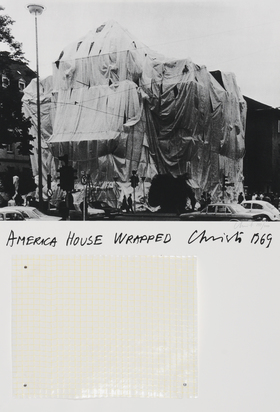 AMERICA HOUSE WRAPPED Christo 1969